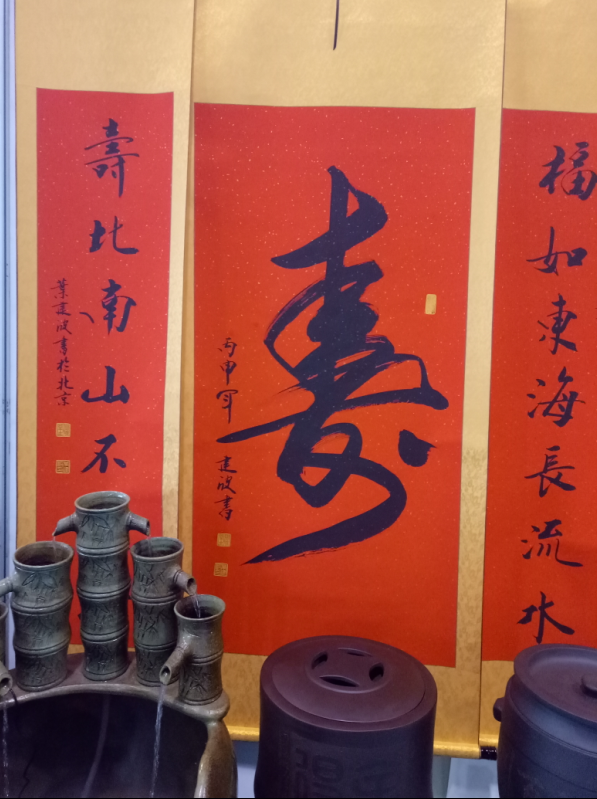 福如東海長流水
壽
丙申年 建波書
壽比南山不
葉建波書於北京